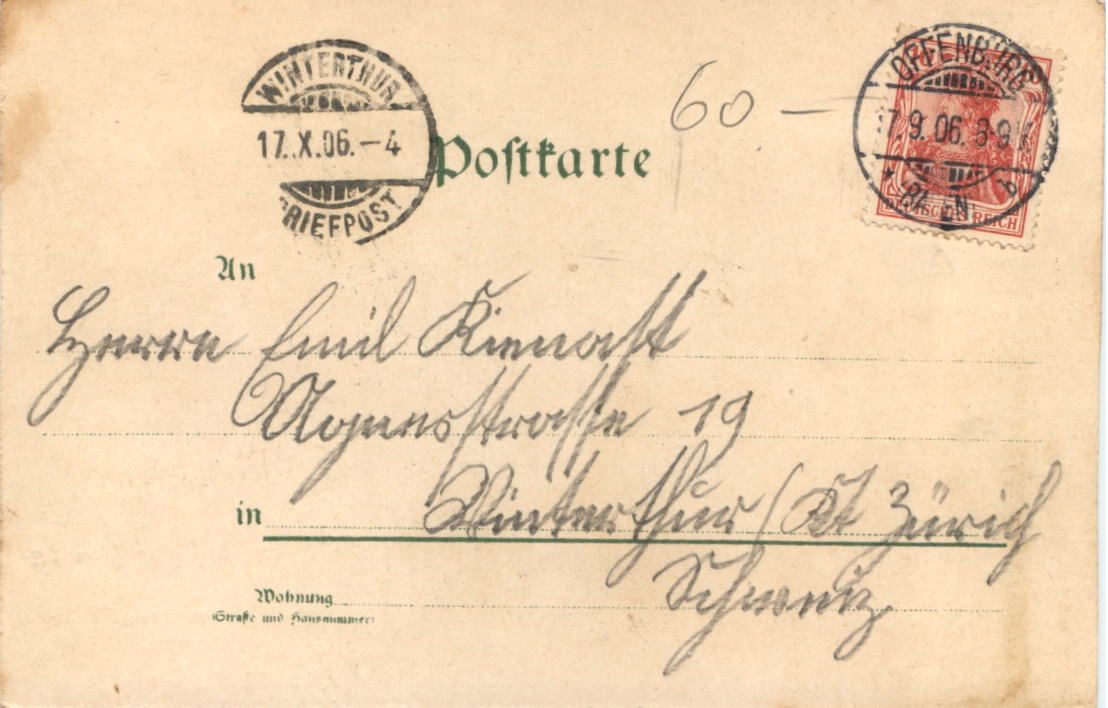 WINTERTHUR
17.X.06.-4
BRIEFPOST
Postkarte
60 -
OFFENBURG
7.9.06. 8-9
DEUTSCHES REICH
An
Herrn Emil Kienast
Agnesstrasse 19
in Winterthur / Kt Zürich
Schweiz.
Wohnung
(Straße und Hausnummer)